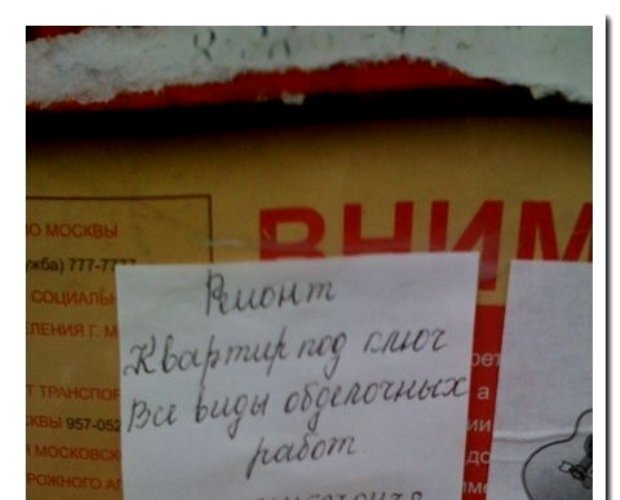 ВО МОСКВЫ
жба) 777-7777
СОЦИАЛЬН
ЛЕНИЯ Г. М
Т ТРАНСПОР
КВЫ 957-052
МОСКОВСК
РОЖНОГО АГ
ВНИМ
Ремонт
Квартир под ключ
Все виды обделочных
работ
рет
а
ии
до
име